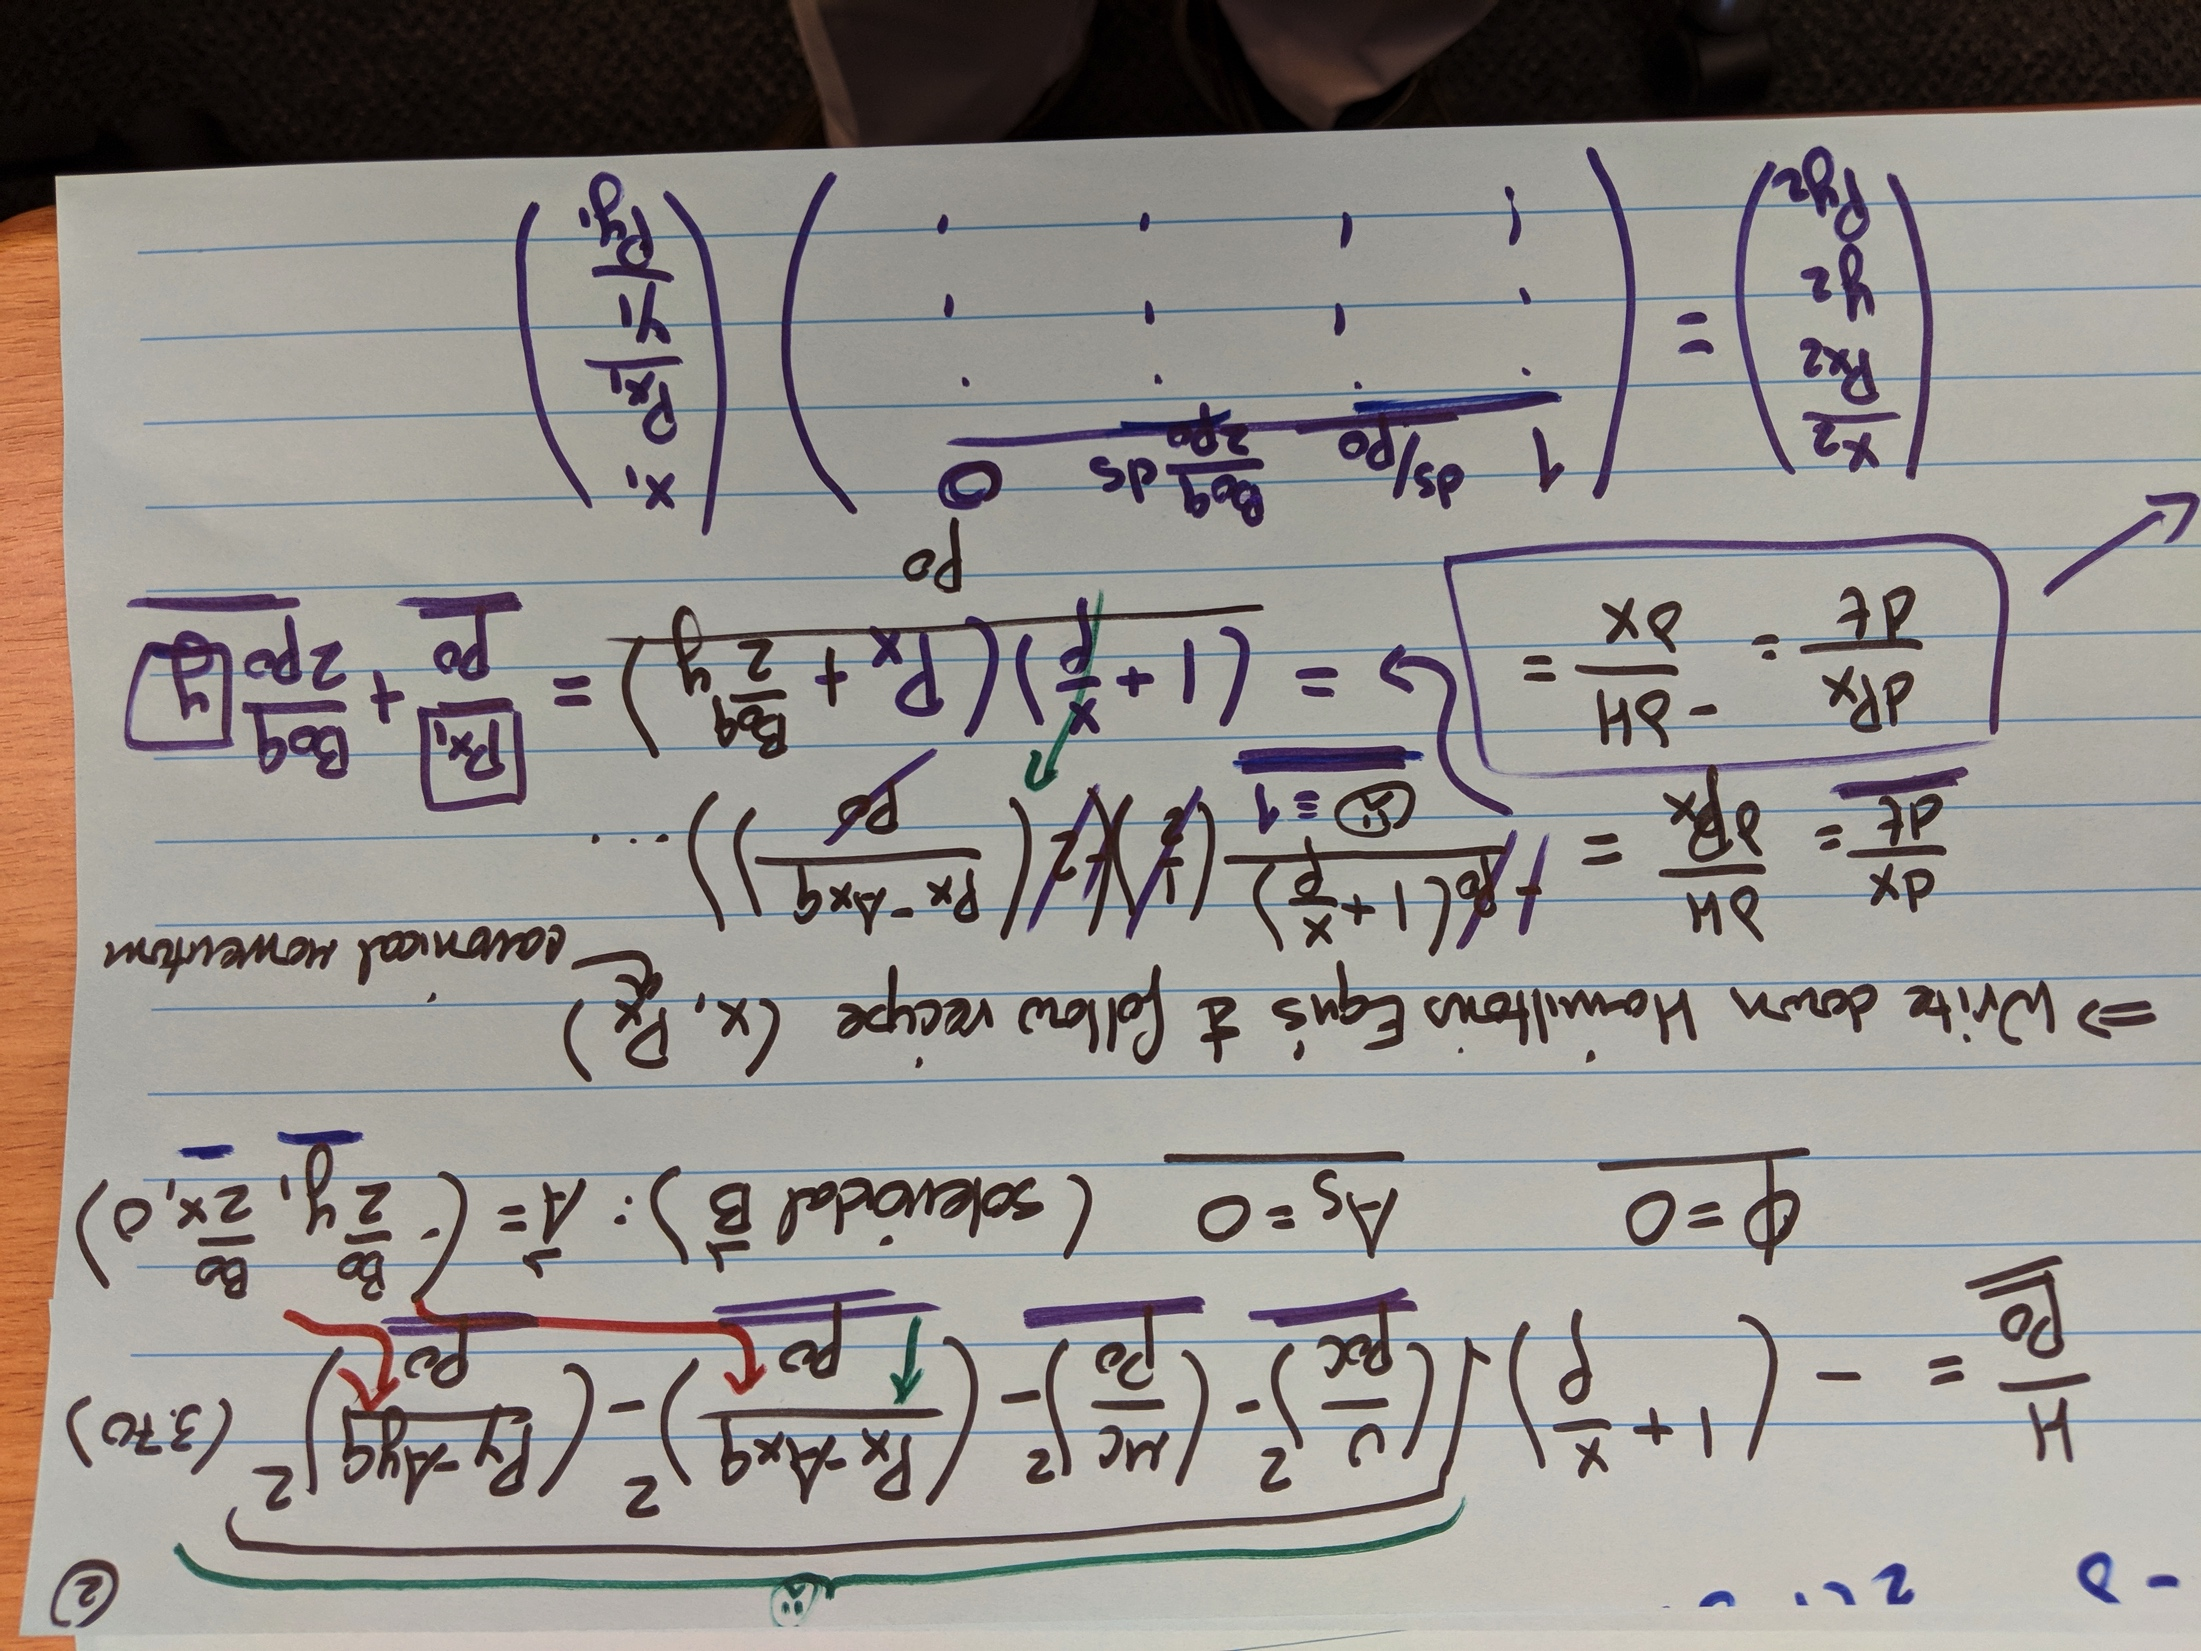 ②
H/p₀ = - (1 + x/ρ) √((U/p₀c)² - (mc/p₀)² - ((Px - Axq)/p₀)² - ((Py - Ayq)/p₀)²) (3.70)
φ = 0 As = 0 (solenoidal B⃗): A⃗ = (-B₀/2 y, B₀/2 x, 0)
⇒ Write down Hamiltons Eqns & follow recipe (x, Px)
canonical momentum
dx/dt = ∂H/∂Px = + p₀(1 + x/ρ)/(☺ ≡ 1) (1/2)(+2((Px - Axq)/p₀)) ...
dPx/dt = -∂H/∂x =
= (1 + x/ρ)(Px + B₀q/2 y)/p₀ = Px₁/p₀ + B₀q/2p₀ y
(x2 Px2 y2 Py2) = (1 ds/p₀ B₀q/2p₀ ds 0) (x₁ Px₁ y₁ Py₁)